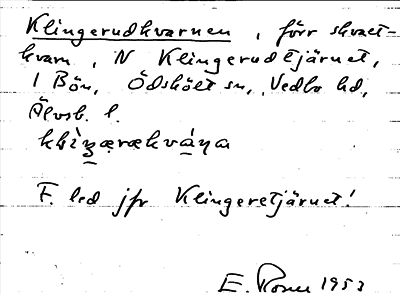 Klingerudkvarnen, förr skvalt-
kvarn, N Klingerudtjärnet,
1 Bön, Ödskölt sn, Vedbo hd,
Älvsb. l.
F. led jfr Klingeretjärnet!
E. 1953